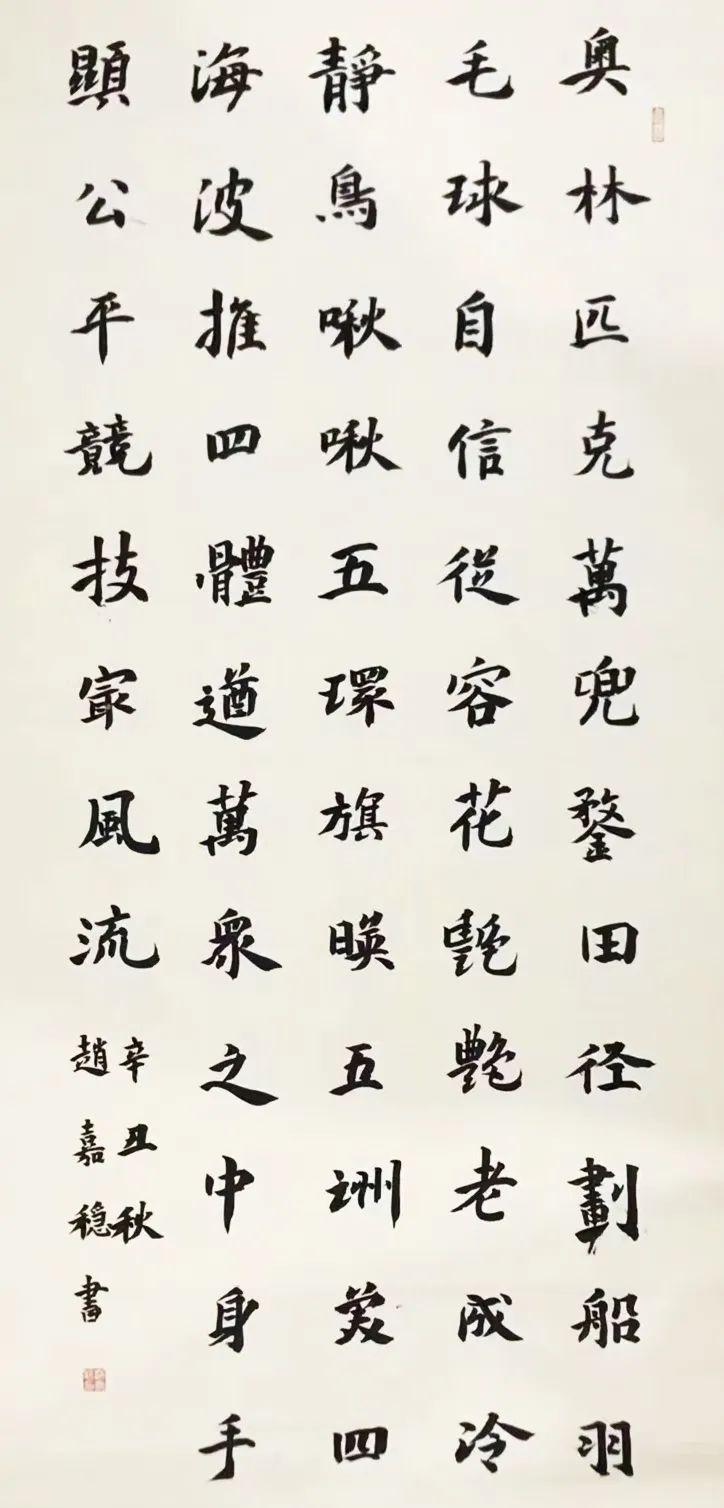 奥林匹克萬兜鍪田径劃船羽
毛球自信從容花艷艷老成冷
靜鳥啾啾五環旗暎五洲美四
海波推四體遒萬衆之中身手
顯公平競技寂風流
辛丑秋
趙嘉穩書